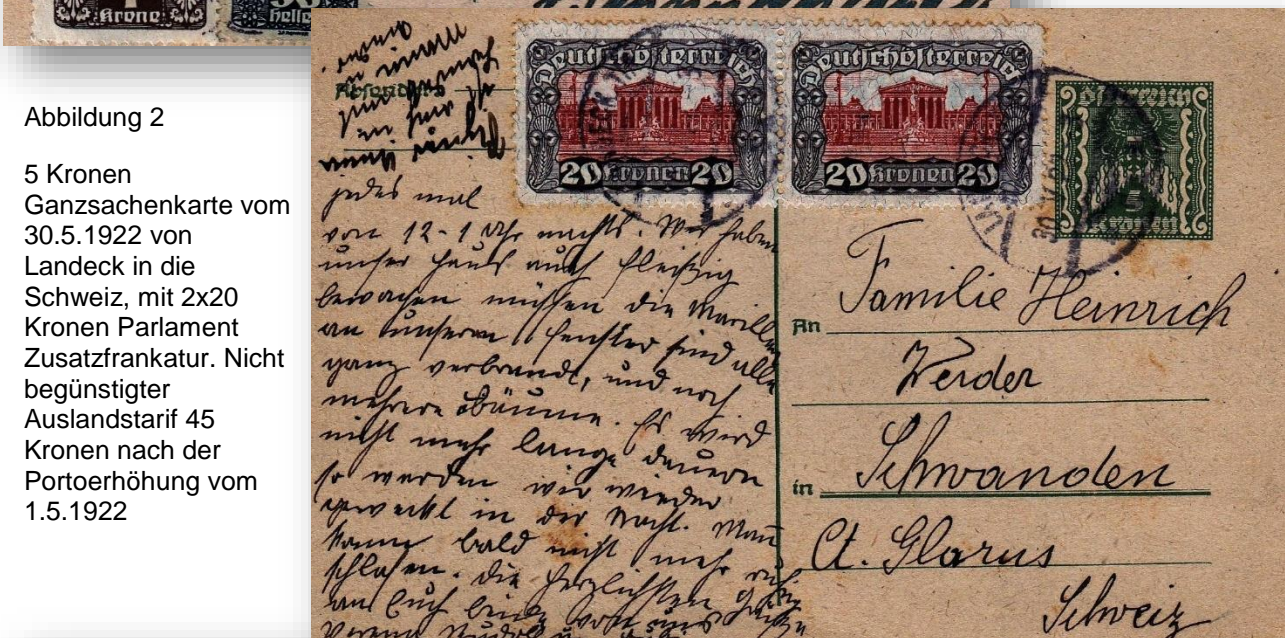 Krone
Helle
Abbildung 2
5 Kronen
Ganzsachenkarte vom
30.5.1922 von
Landeck in die
Schweiz, mit 2x20
Kronen Parlament
Zusatzfrankatur. Nicht
begünstigter
Auslandstarif 45
Kronen nach der
Portoerhöhung vom
1.5.1922
Deutschösterreich
20 Kronen 20
Deutschösterreich
20 Kronen 20
Österreich
5
Kronen
jedes mal
von 12-1 Uhr nachts. Wir haben
unser Haus auch fleißig
bewachen müssen die Marillen
an unserem Fenster sind alle
ganz verbrandt, und noch
mehrere Bäume. Es wird
nicht mehr lange dauern
so werden wir wieder
geweckt in der Nacht. Man
kann bald nicht mehr
schlafen. Die herzlichsten Grüße
an Euch von uns
An Familie Heinrich
Werder
in Schwanden
Ct. Glarus
Schweiz